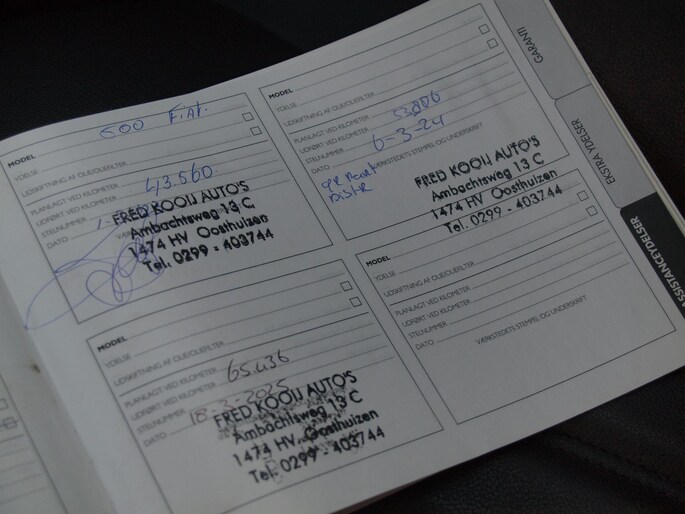 MODEL 500 FiAT.
YDELSE
UDSKIFTNING AF OLIE/OLIEFILTER
PLANLAGT VED KILOMETER
UDFØRT VED KILOMETER 43.560
STELNUMMER
DATO
FRED KOOIJ AUTO'S
Ambachtsweg 13 C
1474 HV Oosthuizen
Tel. 0299 - 403744
MODEL
YDELSE
UDSKIFTNING AF OLIE/OLIEFILTER
PLANLAGT VED KILOMETER
UDFØRT VED KILOMETER 53806
STELNUMMER
DATO 6-3-24
VÆRKSTEDETS STEMPEL OG UNDERSKRIFT
FRED KOOIJ AUTO'S
Ambachtsweg 13 C
1474 HV Oosthuizen
Tel. 0299 - 403744
MODEL
YDELSE
UDSKIFTNING AF OLIE/OLIEFILTER
PLANLAGT VED KILOMETER
UDFØRT VED KILOMETER 65.436
STELNUMMER
DATO 18-2-2025
FRED KOOIJ AUTO'S
Ambachtsweg 13 C
1474 HV Oosthuizen
Tel. 0299 - 403744
MODEL
YDELSE
UDSKIFTNING AF OLIE/OLIEFILTER
PLANLAGT VED KILOMETER
UDFØRT VED KILOMETER
STELNUMMER
DATO
VÆRKSTEDETS STEMPEL OG UNDERSKRIFT
GARANTI
EKSTRA YDELSER
ASSISTANCEYDELSER